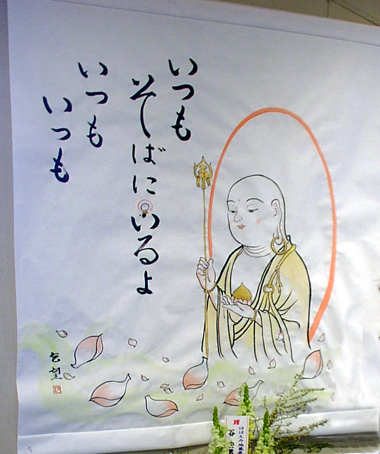 いつも
そばにいるよ
いつも
いつも